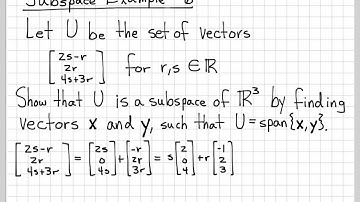 Subspace Example
Let U be the set of vectors
[2s-r
2r
4s+3r] for r,s ∈ ℝ
Show that U is a subspace of ℝ³ by finding
vectors x and y, such that U=span{x,y}.
[2s-r
2r
4s+3r] = [2s
0
4s] + [-r
2r
3r] = s[2
0
4] + r[-1
2
3]